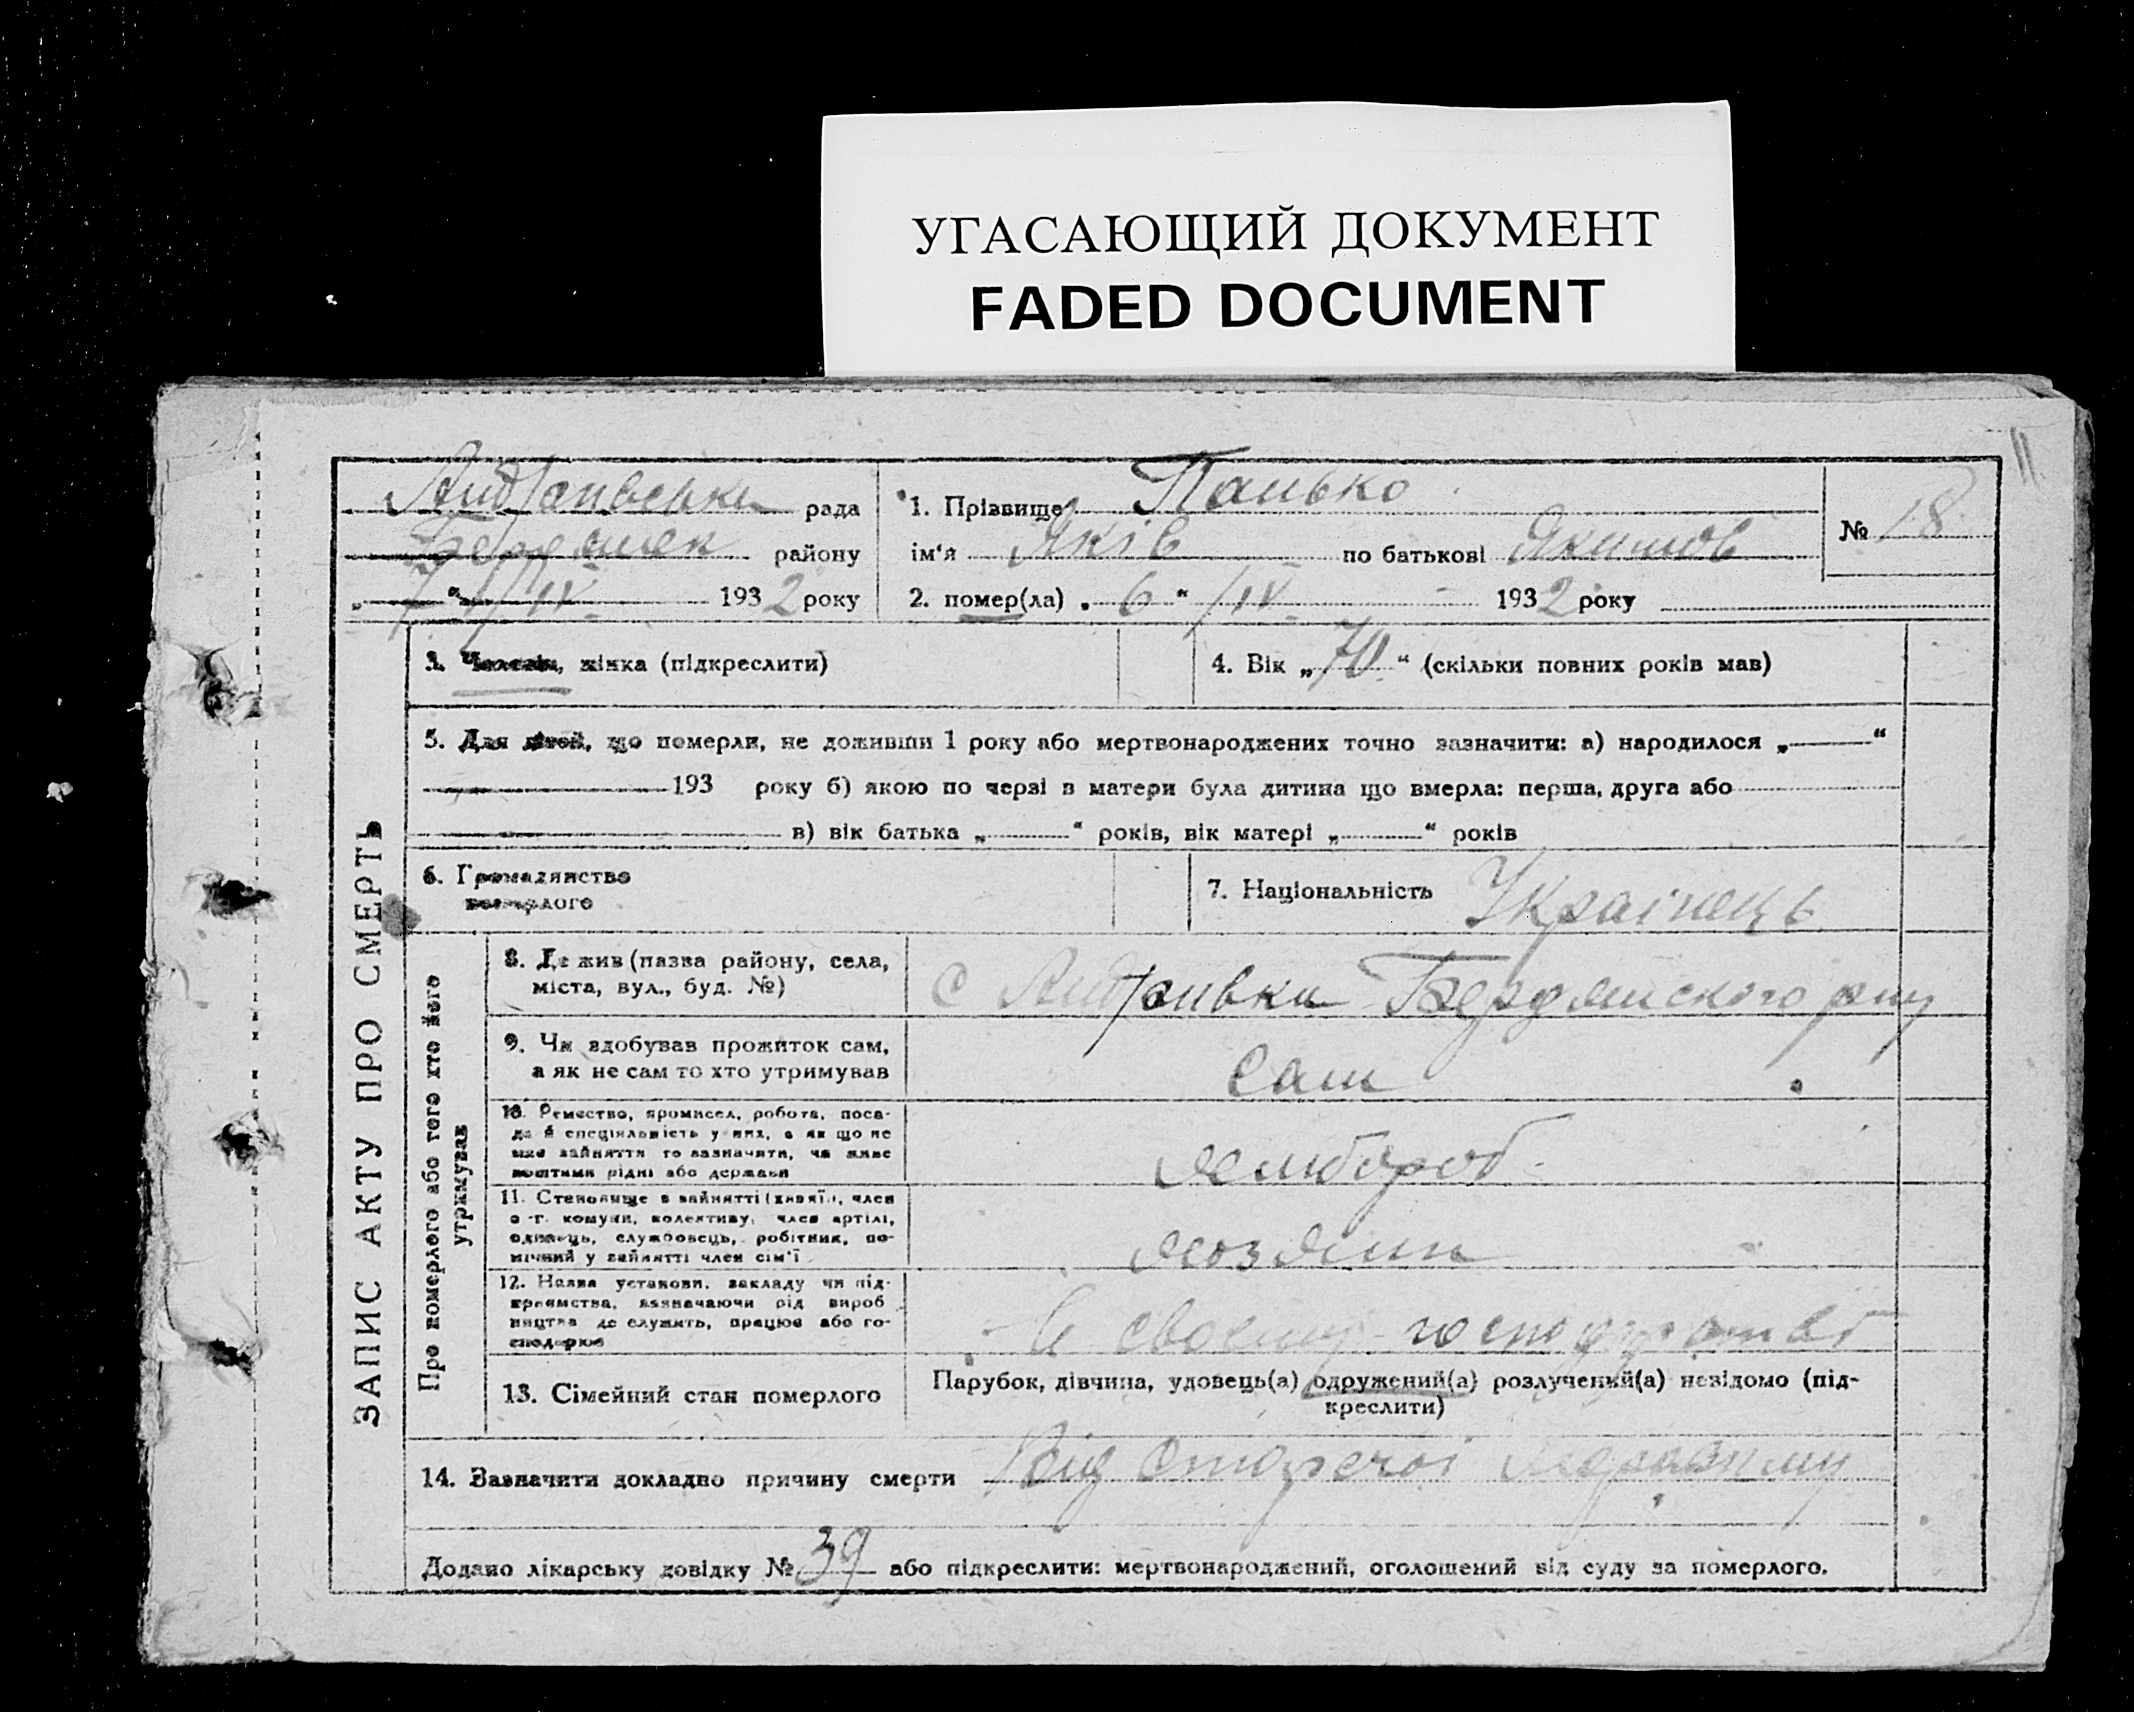 УГАСАЮЩИЙ ДОКУМЕНТ
FADED DOCUMENT
11
ЗАПИС АКТУ ПРО СМЕРТЬ
Андраивська рада
Бердянск району
„7“ /IV 1932 року
1. Прізвище Панько
ім'я Яків по батькові Якимов
2. помер(ла) „6“ /IV 1932 року
№ 18
3. Чоловік, жінка (підкреслити)
4. Вік „70“ (скільки повних років мав)
5. Для дітей, що померли, не доживши 1 року або мертвонароджених точно зазначити: а) народилося „ “
193 року б) якою по черзі в матери була дитина що вмерла: перша, друга або
в) вік батька „ “ років, вік матері „ “ років
6. Громадянство
померлого
7. Національність Украінець
Про померлого або того хто його
утримував
8. Де жив (назва району, села,
міста, вул., буд. №)
с Андраивка Бердянского р-ну
9. Чи здобував прожиток сам,
а як не сам то хто утримував
Сам
10. Ремество, промисел, робота, поса-
да й спеціяльність у них, а як що не
має зайняття то зазначити, чи живе
коштами рідні або держави
хлибороб
11. Становище в зайнятті (хазяїн, член
с.-г. комуни, колективу, член артілі,
одинець, службовець, робітник, по-
мічний у зайнятті член сім'ї
хозяин
12. Назва установи, закладу чи під-
приємства, зазначаючи рід вироб
ництва де служить, працює або го-
сподарює
в своему господарстві
13. Сімейний стан померлого
Парубок, дівчина, удовець(а) одружений(а) розлучений(а) невідомо (під-
креслити)
14. Зазначити докладно причину смерти Від старечоі
Додано лікарську довідку № 39 або підкреслити: мертвонароджений, оголошений від суду за померлого.